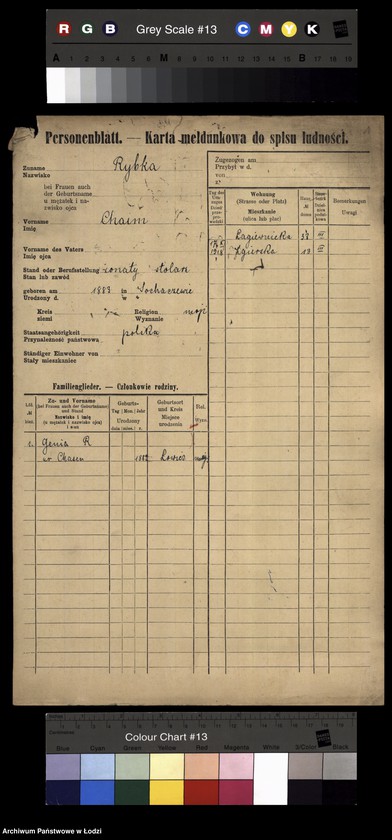 R G B Grey Scale #13 C M Y K
A 1 2 3 4 5 6 M 8 9 10 11 12 13 14 15 B 17 18 19
Personenblatt. — Karta meldunkowa do spisu ludności.
Zuname
Nazwisko
Rybka
bei Frauen auch
der Geburtsname
u mężatek i na-
zwisko ojca
Vorname
Imię
Chaim
Vorname des Vaters
Imię ojca
Stand oder Berufsstellung
Stan lub zawód
żonaty stolarz
geboren am 1883 in Sochaczewie
Urodzony d. w
Kreis
ziemi
Religion
Wyznanie
mojż
Staatsangehörigkeit
Przynależność państwowa
polska
Ständiger Einwohner von
Stały mieszkaniec
Zugezogen am
Przybył w d.
von
z
Tag der
Wohnung
(Strasse oder Platz)
Mieszkanie
(ulica lub plac)
Bemerkungen
Uwagi
Łagiewnicka III
1918 Zgierska 13 III
Familienglieder. — Członkowie rodziny.
Zu- und Vorname
(bei Frauen auch der Geburtsname)
und Stand
Nazwisko i imię
(u mężatek i nazwisko ojca)
i stan
Geburts-
Tag Mon. Jahr
Urodzony
Geburtsort
und Kreis
Miejsce
urodzenia
Rel.
Wyzn.
1. Genia R
1882 Łowicz
Colour Chart #13
Blue Cyan Green Yellow Red Magenta White 3/Color Black
Archiwum Państwowe w Łodzi